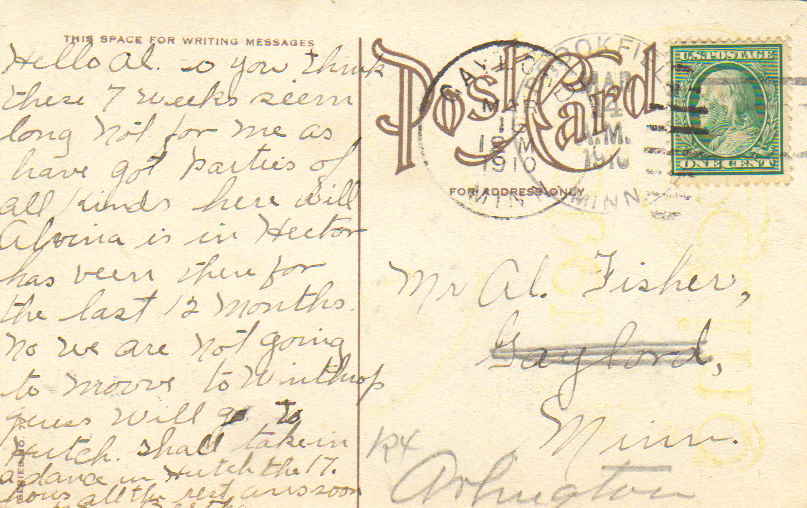 THIS SPACE FOR WRITING MESSAGES
Hello Al. Do you think
these 7 weeks seem
long not for me as
have got parties of
all kinds here well
Alvina is in Hector
has been there for
the last 12 months.
no we are not going
to move to Winthrop
guess will go to
Hutch. Shall take in
a dance in Hutch the 17.
hows all the rest ans soon
Post Card
FOR ADDRESS ONLY
GAYLORD
MAR
16
12 M
1910
MINN.
BROOKFIELD
MAR
A.M.
1910
MINN.
U.S. POSTAGE
ONE CENT
Mr Al. Fisher,
Gaylord,
Minn.
R4
Arlington
SERIES NO.